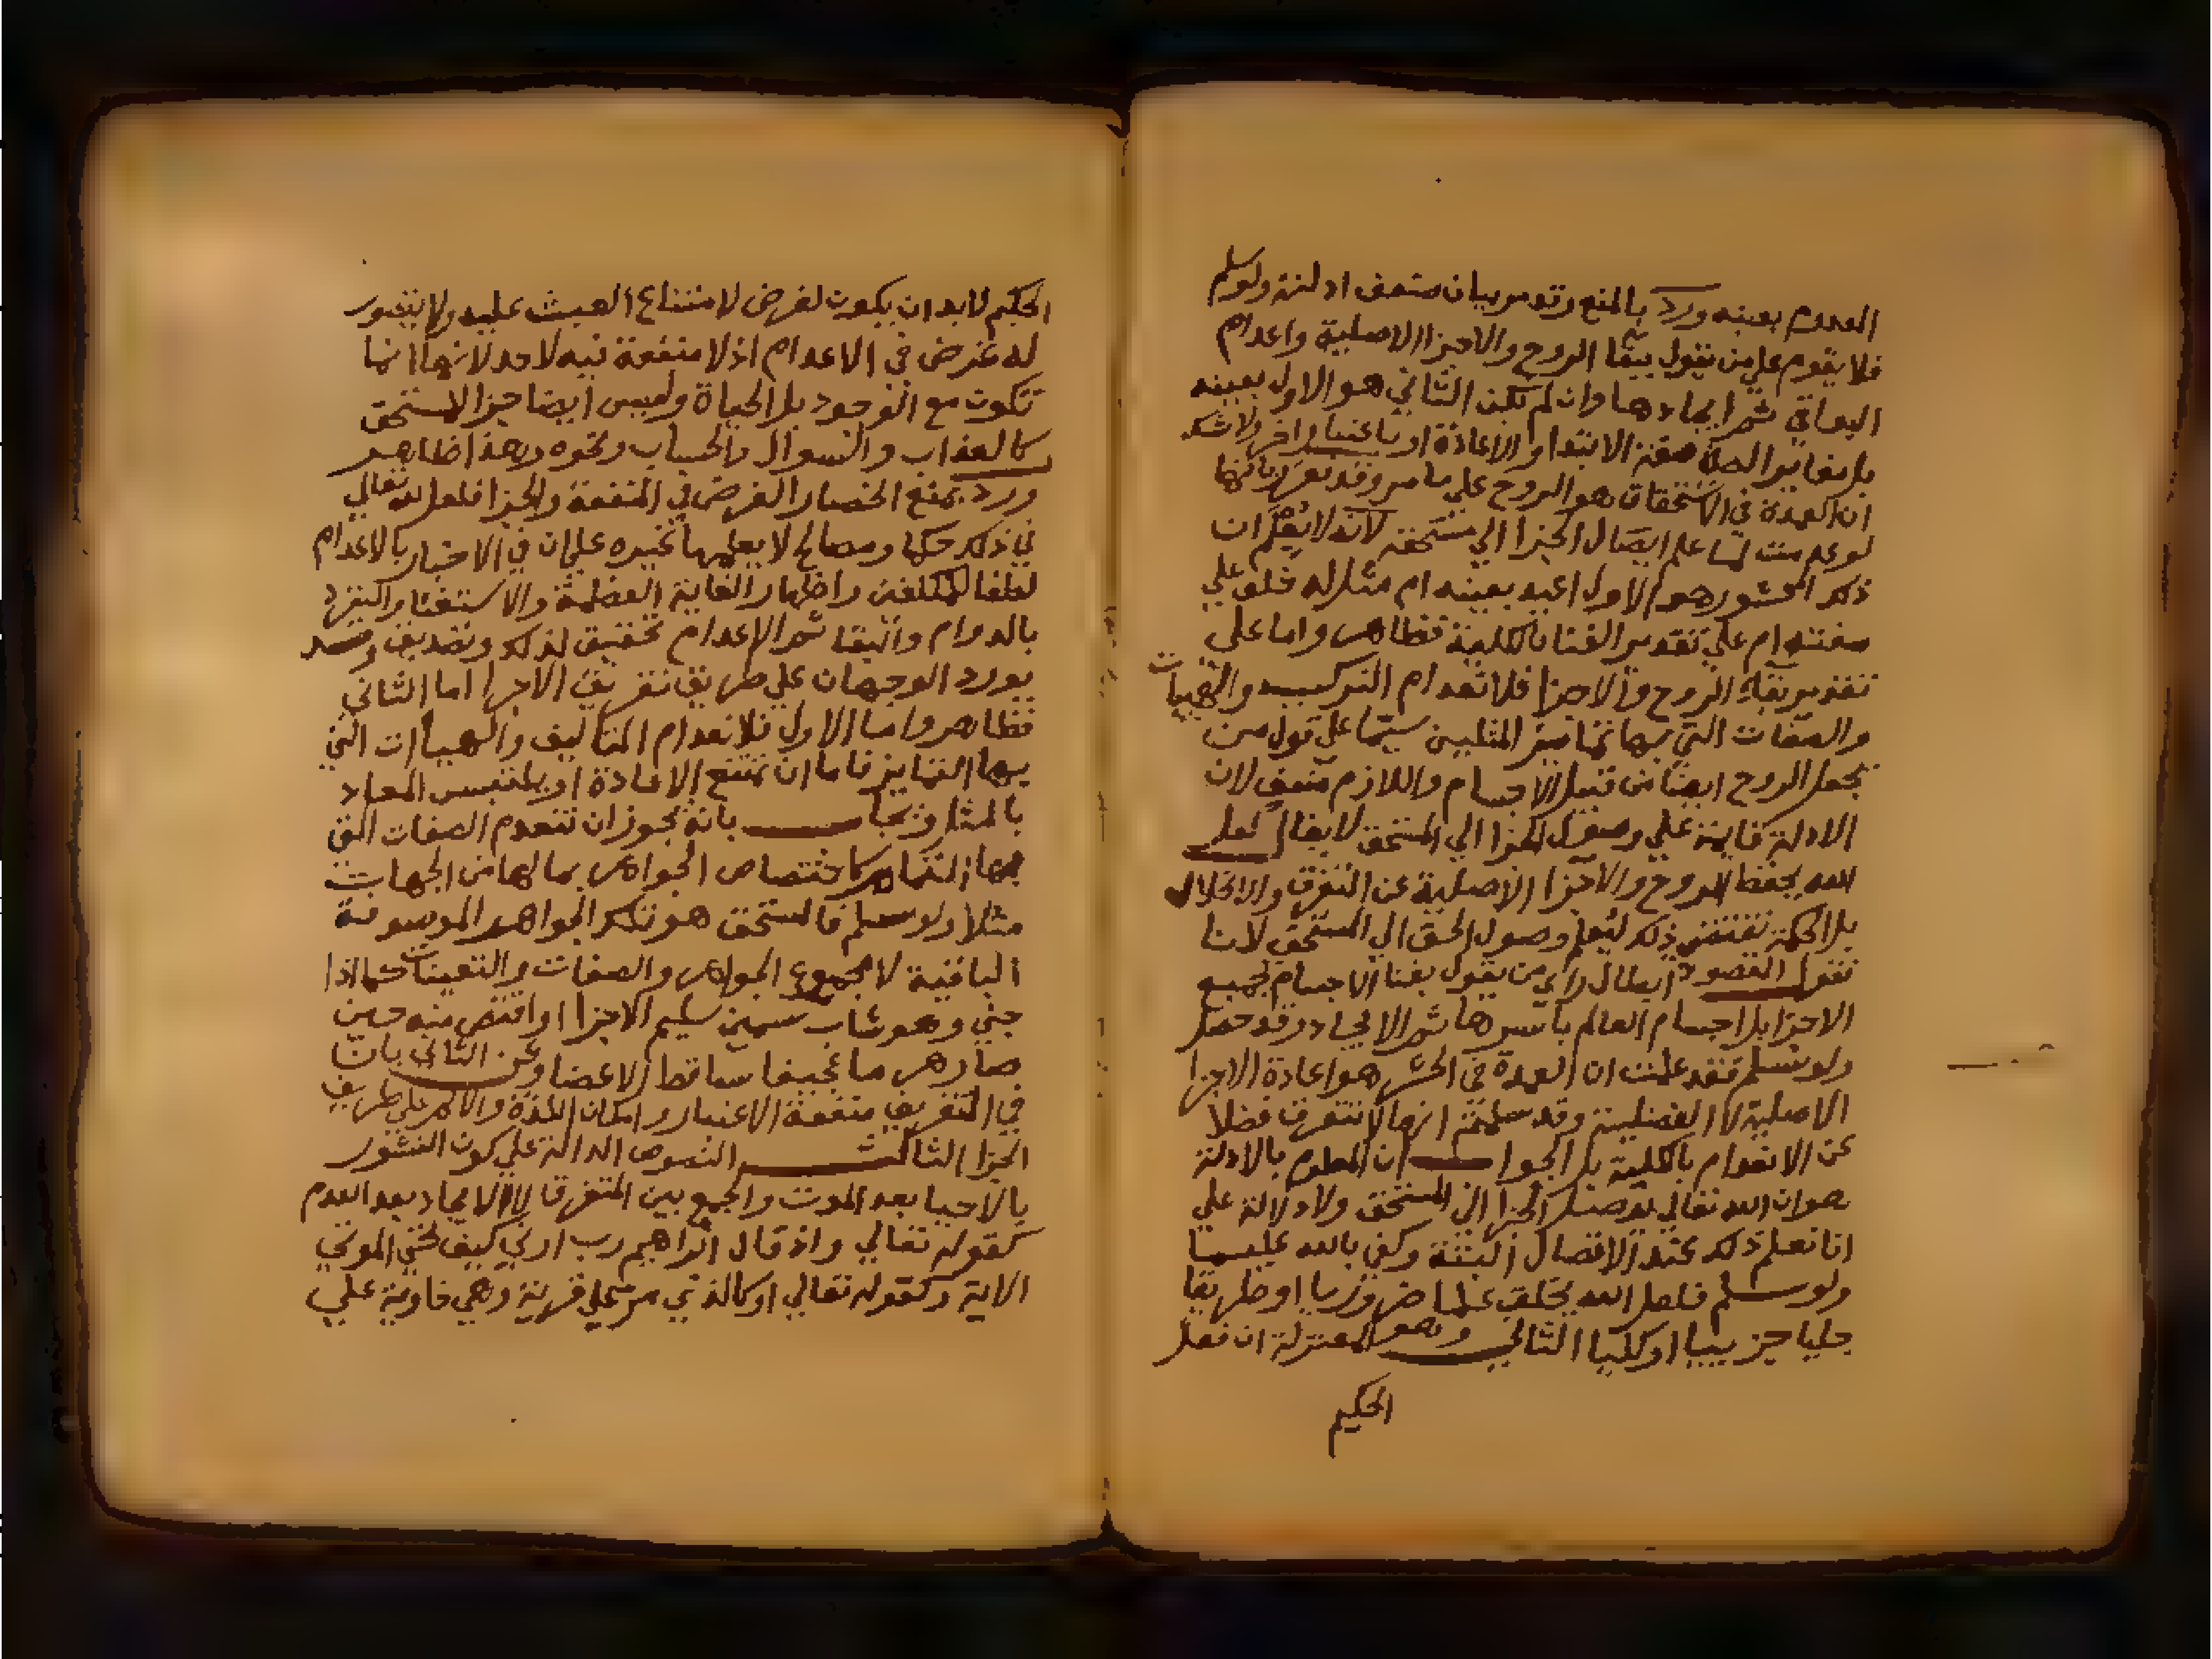 المعدوم بعينه ورد بالمنع وقد مر بيان ضعف ادلته ولو سلم
فلا يقوم علي من يقول ببقا الروح والاجزا الاصلية واعدام
البواقي ثم ايجادها وان لم يكن الثاني هو الاول بعينه
بل مغايرا له في صفة الابتدا والاعادة او باعتبار اخر ولا شك
ان العمدة في الاستحقاق هو الروح علي ما مر وقد يقرر بانها
لو عدمت لما علم ايصال الجزا الي مستحقه لانه لا يعلم ان
ذلك المحشور هو الاول اعيد بعينه ام مثل له خلق علي
صفته ام علي تقدير الفنا بالكلية فظاهر واما علي
تقدير بقاء الروح والاجزا فلانعدام التركيب والهيات
والصفات التي بها تمايز المثلين سيما علي قول من
يجعل الروح ايضا من قبيل الاجسام واللازم منتف لان
الادلة قايمة علي وصول الجزا الي المستحق لا يقال لعل
الله يحفظ الروح والاجزا الاصلية عن التفرق والانحلال
بل الحكمة تقتضي ذلك ليعلم وصول الحق الي المستحق لانا
نقول المقصود ابطال راي من يقول بفنا الاجسام بجميع
الاجزا بل اجسام العالم باسرها ثم الايجاد وقد حصل
ولو سلم فقد علمت ان العمدة في الحشر هو اعادة الاجزا
الاصلية لا الفضلية وقد سلمتم انها لا تتفرق فضلا
عن الانعدام بالكلية بل الجواب ان المعلوم بالادلة
هو ان الله تعالي يوصل الجزا الي المستحق ولا دلالة علي
انا نعلم ذلك عند الايصال البتة وكفي بالله عليما
ولو سلم فلعل الله يخلق علما ضروريا او طريقا
جليا جزييا او كليا الثاني وهو للمعتزلة ان فعل
الحكيم
الحكيم لا بد ان يكون لغرض لامتناع العبث عليه ولا يتصور
له غرض في الاعدام اذ لا منفعة فيه لاحد لانها انما
تكون مع الوجود بل الحياة وليس ايضا جزا لمستحق
كالعذاب والسوال والحساب ونحوه وهذا ظاهر
ورد بمنع انحصار الغرض في المنفعة والجزا فلعل لله تعالي
في ذلك حكما ومصالح لا يعلمها غيره علي ان في الاخبار بالاعدام
لطفا للمكلفين واظهار الغاية العظمة والاستغنا والتفرد
بالدوام والبقا ثم الاعدام تحقيق لذلك وتصديق وقد
يورد الوجهان علي طريق تفريق الاجزا اما الثاني
فظاهر واما الاول فلانعدام التاليف والهيات التي
بها التمايز فاما ان تمتنع الاعادة او يلتبس المعاد
بالمثل ويجاب بانه يجوز ان تنعدم الصفات التي
بها التمايز كاختصاص الجواهر بما لها من الجهات
مثلا ولو سلم فالمستحق هو تلك الجواهر الموصوفة
الباقية لا مجموع الجواهر والصفات والتعينات كما اذا
جني وهو شاب سمين سليم الاجزا او اقتص منه حين
صار هرما عجيفا ساقط الاعضا وعن الثاني بان
في التفريق منفعة الاعتبار وامكان اللذة والالم علي طريق
الجزا الثالث النصوص الدالة علي كون النشور
بالاحيا بعد الموت والجمع بين المتفرقا لا الايجاد بعد العدم
كقوله تعالي واذ قال ابراهيم رب ارني كيف تحي الموتي
الاية وكقوله تعالي او كالذي مر علي قرية وهي خاوية علي